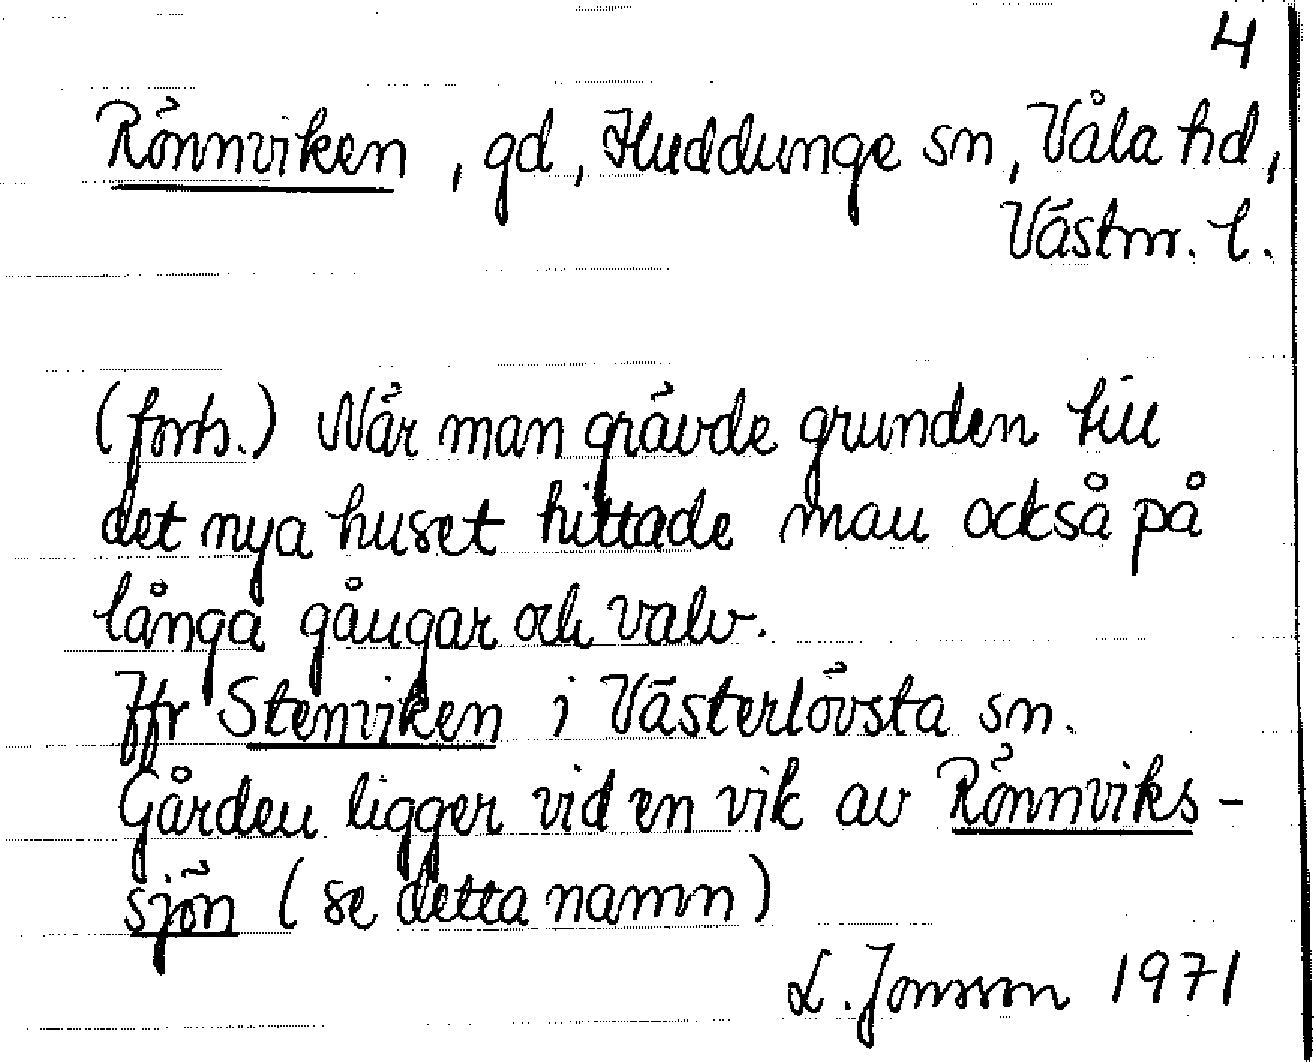 4
Rönnviken, gd, Huddunge sn, Våla hd,
Västm. l.
(forts.) När man grävde grunden till
det nya huset hittade man också på
långa gångar och valv.
Jfr Stenviken i Västerlövsta sn.
Gården ligger vid en vik av Rönnviks-
sjön (se detta namn)
L. Jonsson 1971